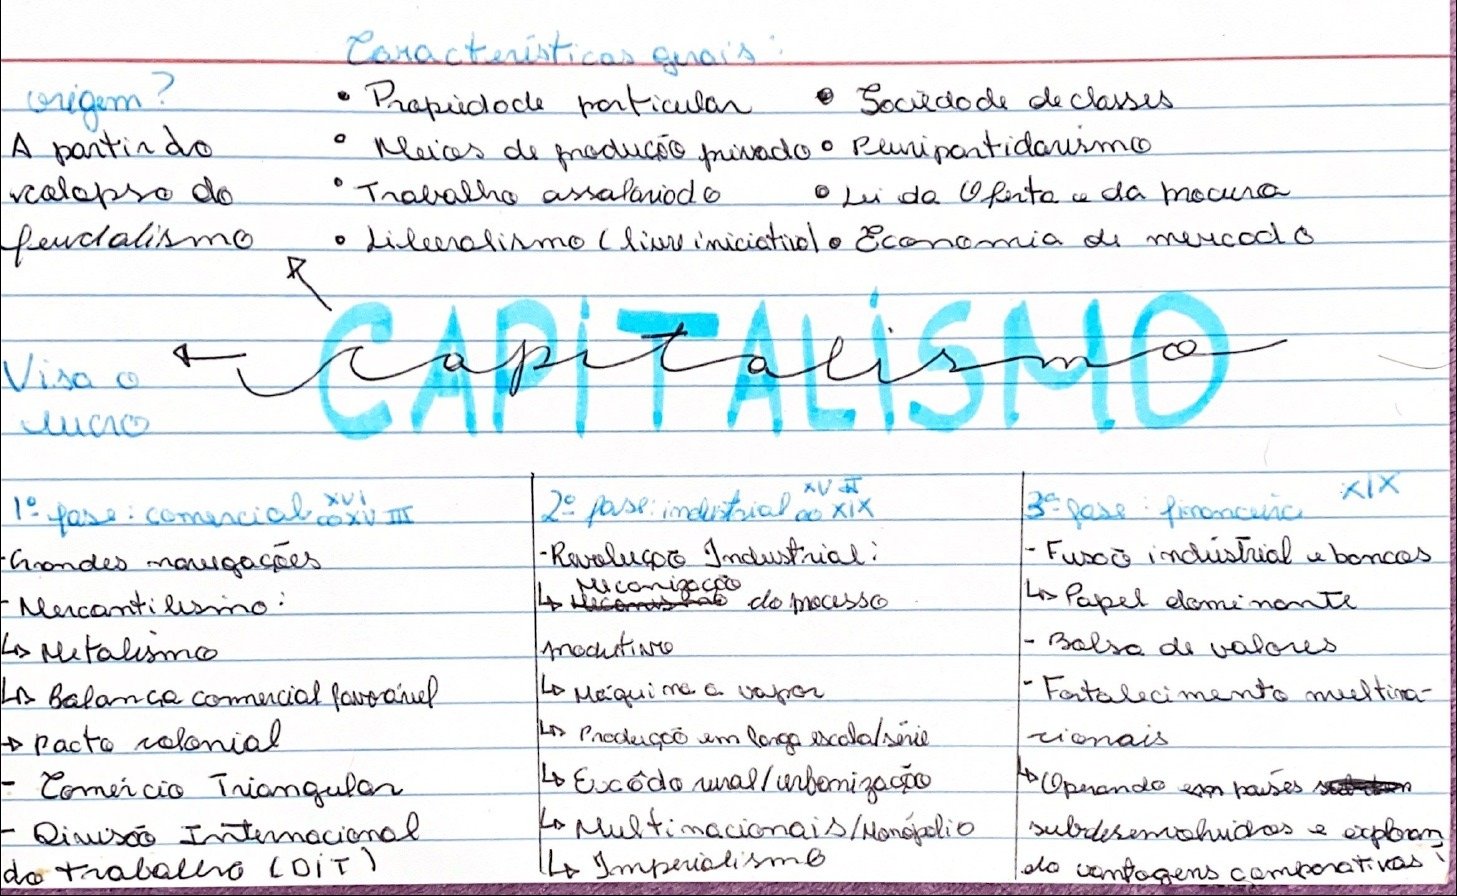 Características gerais:
origem?
A partir do
colapso do
feudalismo
• Propiedade particular
• Meios de produção privado
• Trabalho assalariado
• Liberalismo (livre iniciativa)
• Sociedade de classes
• Pluripartidarismo
• Lei da Oferta e da procura
• Economia de mercado
CAPITALISMO
capitalismo
Visa o
lucro
1º fase: comercial XVI ao XVIII
- Grandes navegações
- Mercantilismo:
↳ Metalismo
↳ Balança comercial favorável
→ pacto colonial
- Comércio Triangular
- Divisão Internacional
do trabalho (DIT)
2º fase: industrial XVIII ao XIX
- Revolução Industrial:
↳ Mecanização do processo
produtivo
↳ Máquina a vapor
↳ Produção em larga escala/série
↳ Excôdo rural/urbanização
↳ Multinacionais/Monópolio
↳ Imperialismo
3º fase: financeira XIX
- Fusão indústrial e bancos
↳ Papel dominante
- Bolsa de valores
- Fortalecimento multina-
cionais
↳ Operando em países
subdesenvolvidos e exploran
do vantagens comparativas